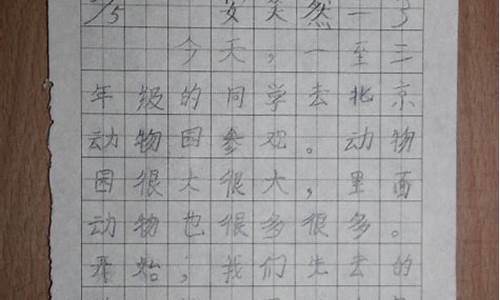 5/5 安笑然一3
今天，一至三
年级的同学去北京
动物园参观。动物
园很大很大，里面
动物也很多很多。
开始，我们先去的